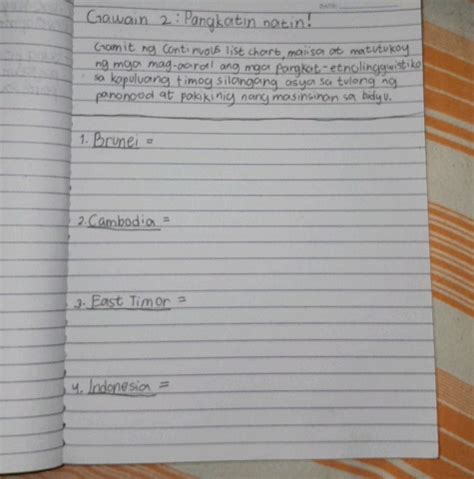 DATE:
Gawain 2: Pangkatin natin!
Gamit ng Continuous list chart, maiisa at matutukoy
ng mga mag-aaral ang mga pangkat-etnolinggwistiko
sa kapuluang timog silangang asya sa tulong ng
panonood at pakikinig nang masinsinan sa bidyu.
1. Brunei =
2. Cambodia =
3. East Timor =
4. Indonesia =